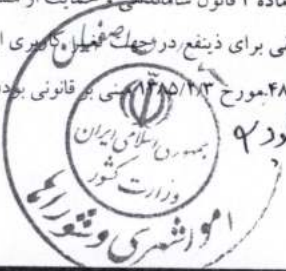 ماده ۱ قانون ساماندهی و حمایت از
نی برای ذینفع در جهت تغییر کاربری
۴۸ مورخ ۱۳۸۵/۲/۳ مبنی بر قانونی بود
جمهوری اسلامی ایران
وزارت کشور
امور شهری و شوراها